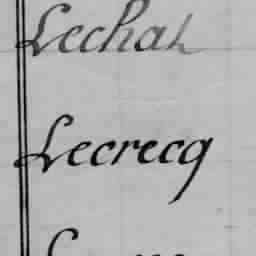 Lechat
Lecrecq